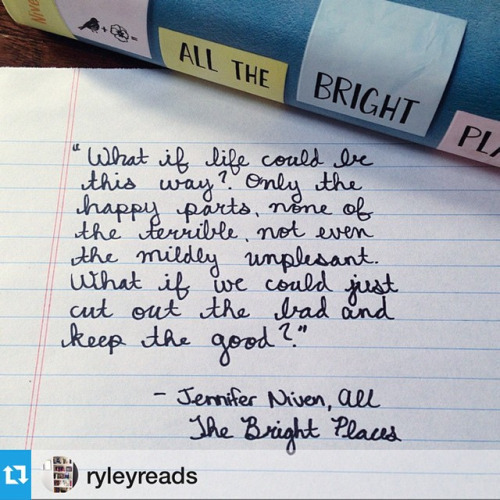 Nive
+ =
ALL THE
BRIGHT
PLA
"What if life could be
this way? Only the
happy parts, none of
the terrible, not even
the mildly unplesant.
What if we could just
cut out the bad and
keep the good?"
- Jennifer Niven, All
The Bright Places
ryleyreads